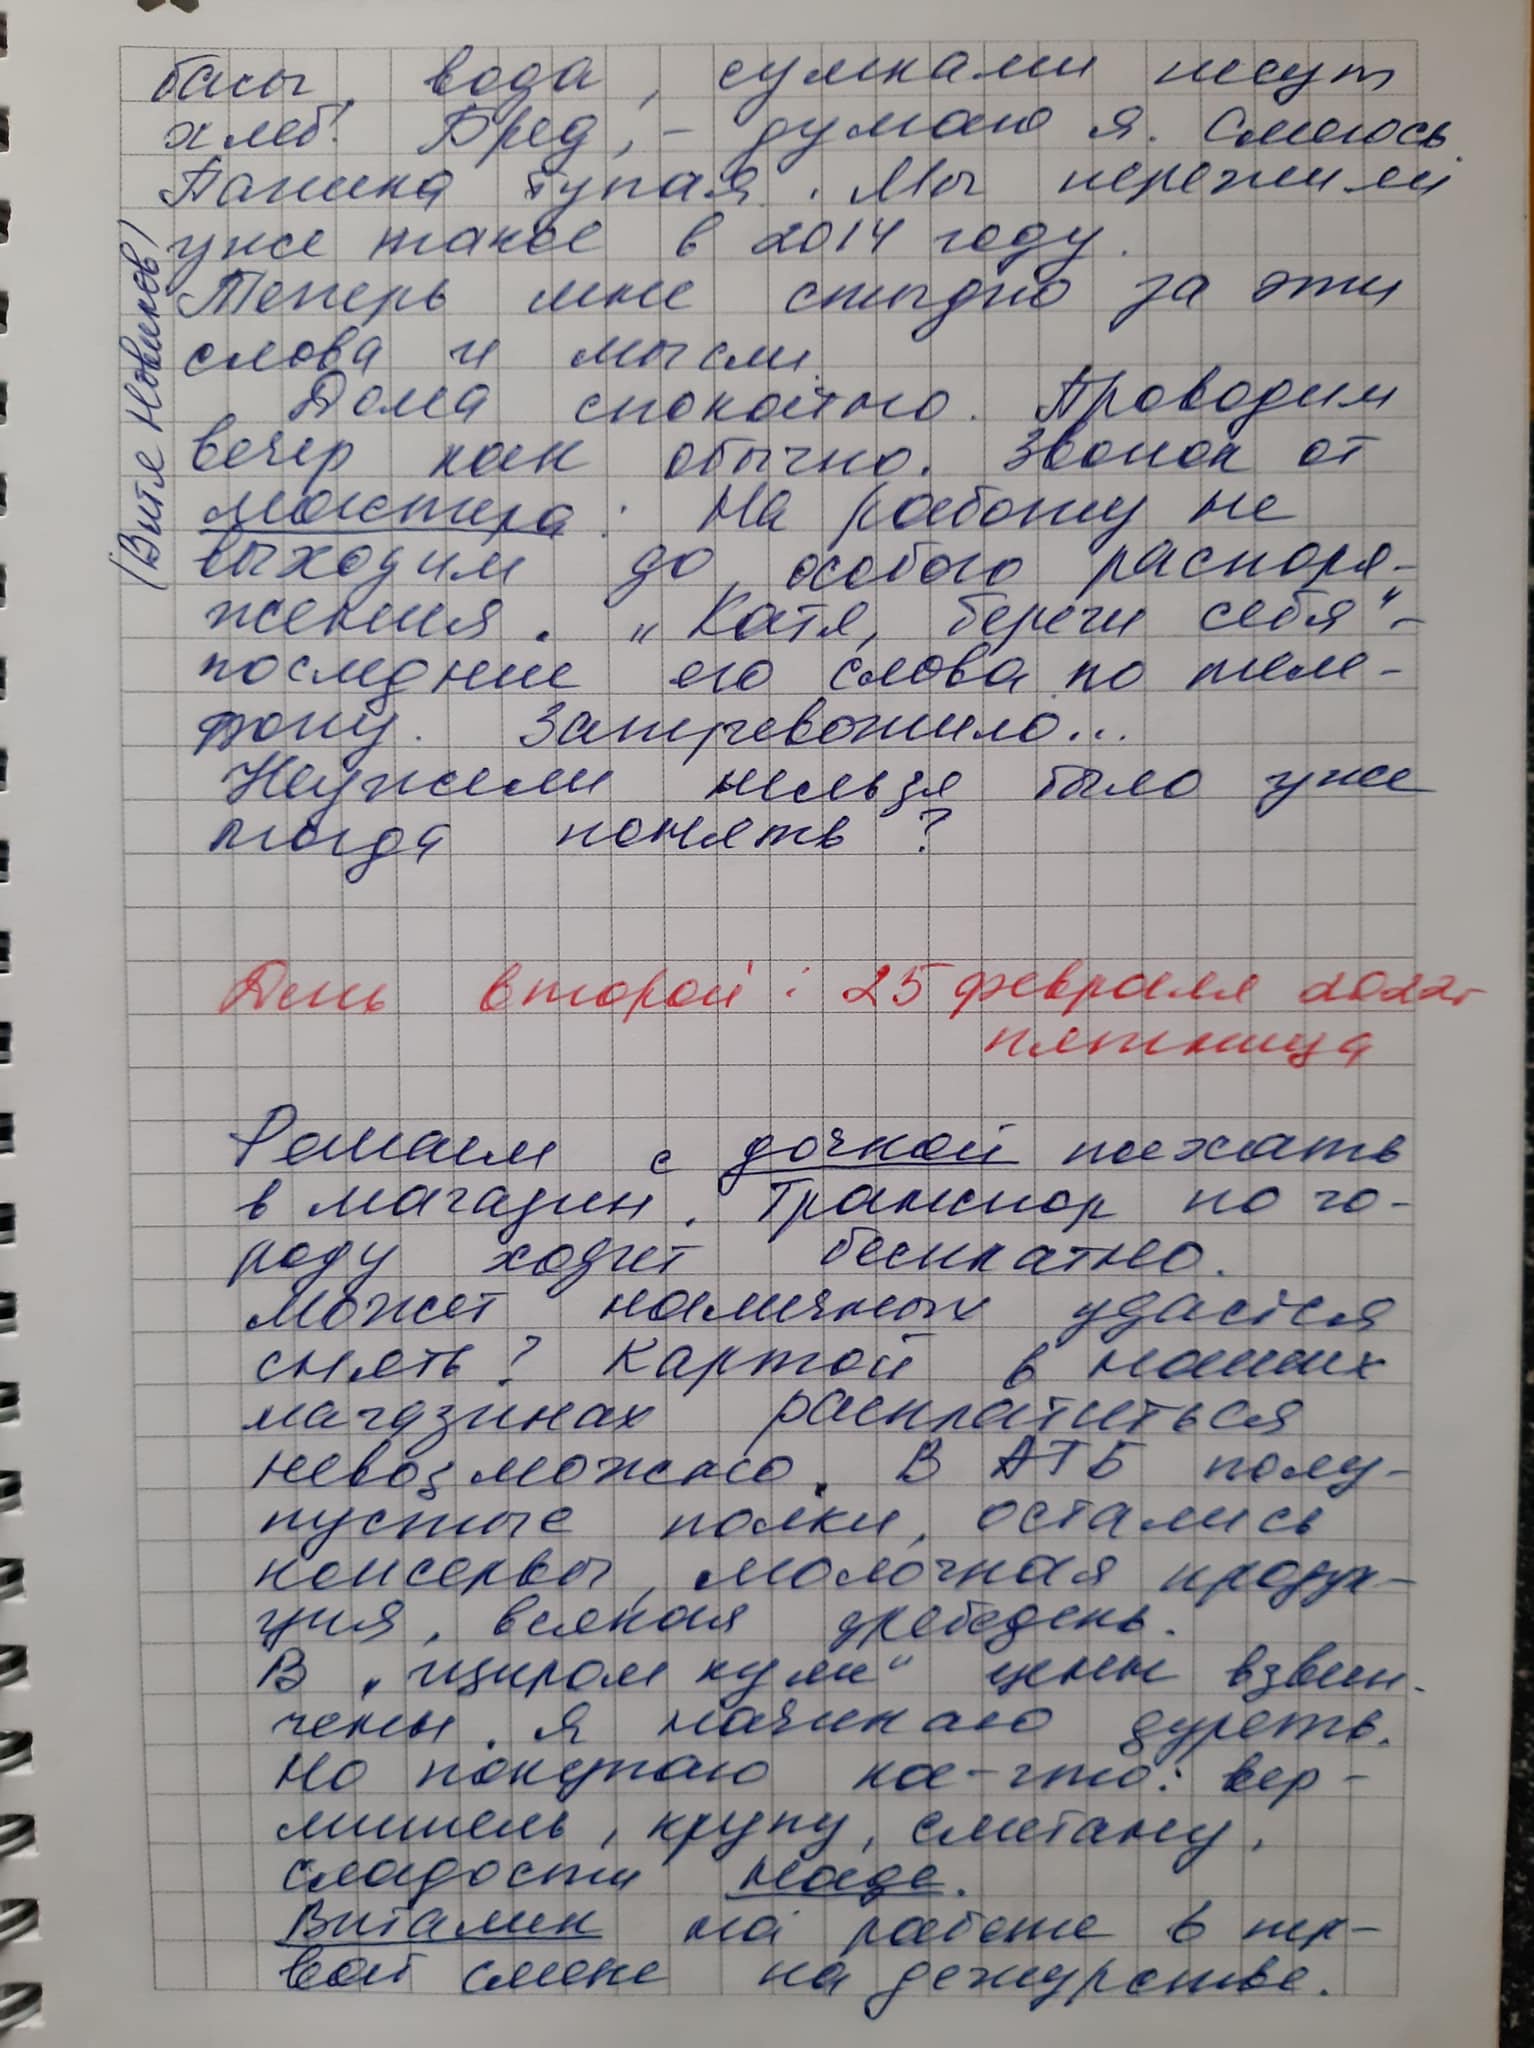 басы, вода, сумками несут
хлеб! Бред, - думаю я. Смеюсь.
Паника тупая. Мы пережили
уже такое в 2014 году.
Теперь мне стыдно за эти
слова и мысли.
Дома спокойно. Проводим
вечер как обычно. Звонок от
мастера: На работу не
(Витя Новиков)
выходим до особого распоря-
жения. „Катя, береги себя" -
последние его слова по теле-
фону. Затревожило...
Неужели нельзя было уже
тогда понять?
День второй: 25 февраля 2022г
пятница
Решаем с дочкой поехать
в магазин. Транспор по го-
роду ходит бесплатно.
Может наличных удастся
снять? Картой в наших
магазинах расплатиться
невозможно. В АТБ полу-
пустые полки, остались
консервы, молочная продук-
ция, всякая дребедень.
В „щиром куме" цены взвин-
чены. Я начинаю дуреть.
Но покупаю кое-что: вер-
мишель, крупу, сметану,
сладости Наде.
Виталик на работе в пер-
вой смене на дежурстве.